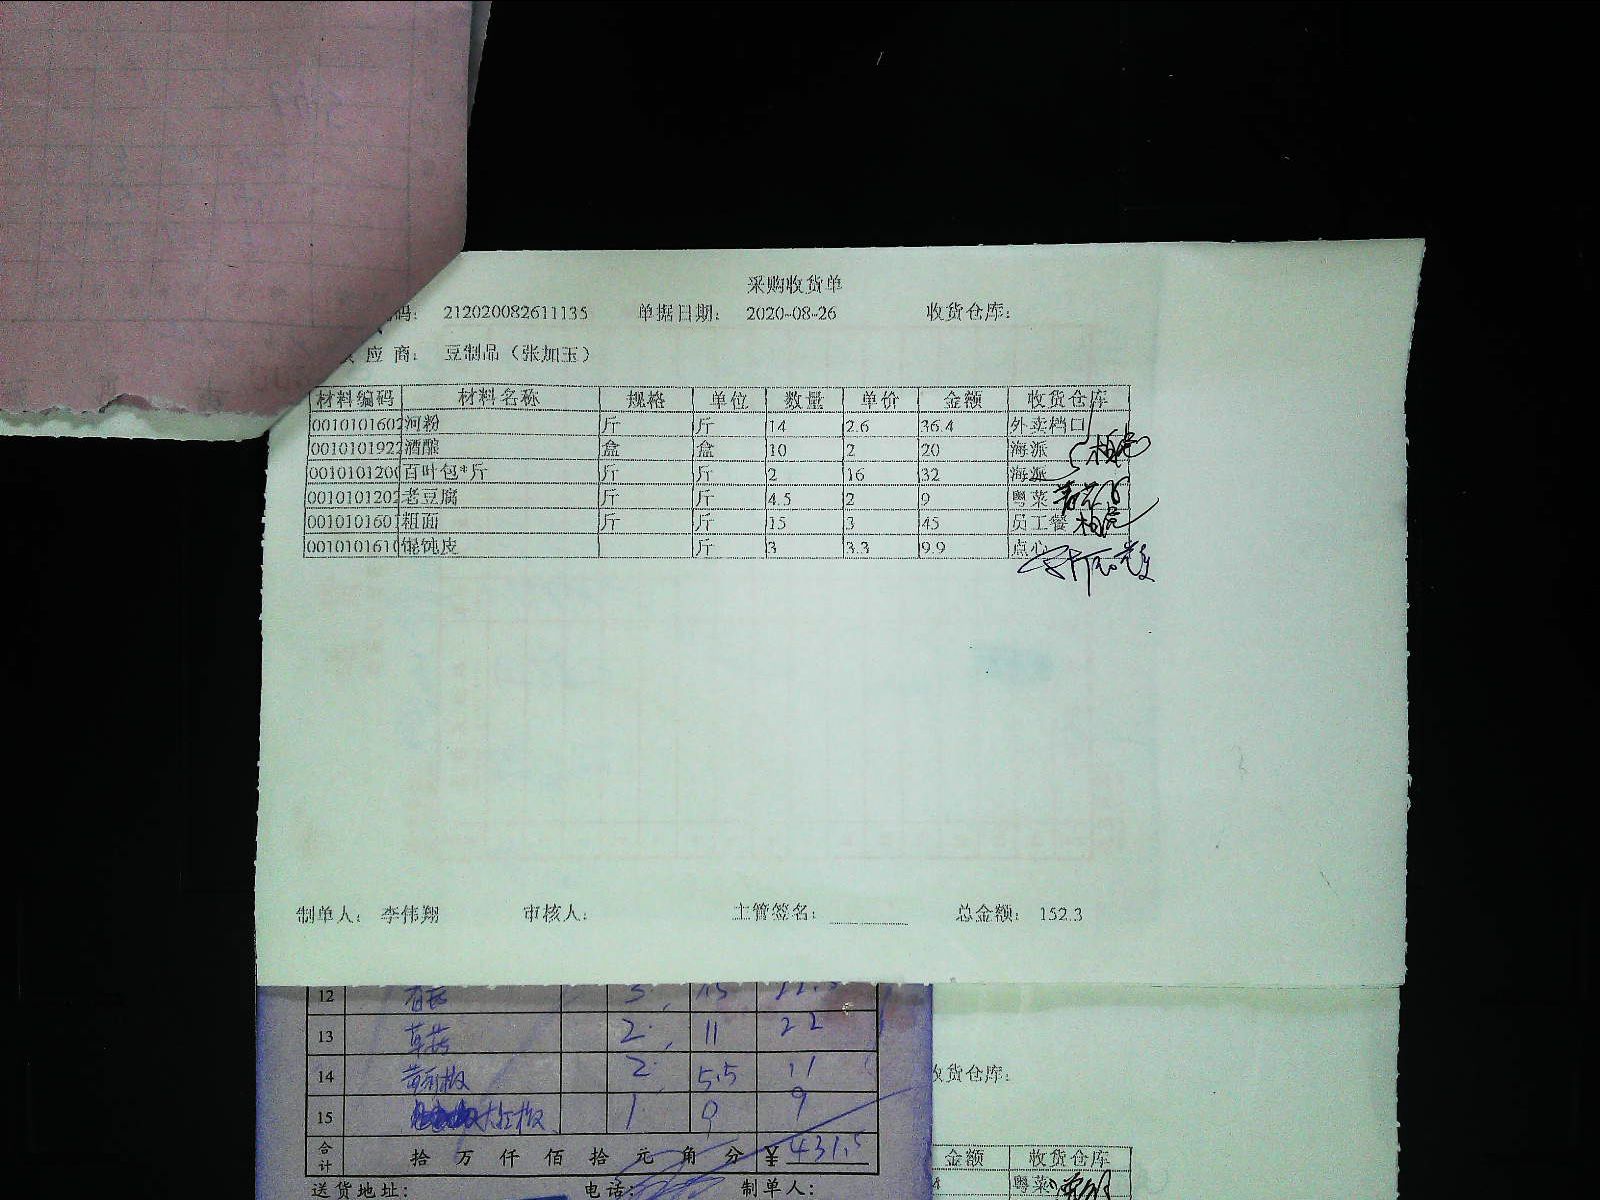 采购收货单
码： 212020082611135 单据日期： 2020-08-26 收货仓库：
应 商： 豆制品（张加玉）
材料编码 材料名称 规格 单位 数量 单价 金额 收货仓库
0010101602 河粉 斤 斤 14 2.6 36.4 外卖档口
0010101922 酒酿 盒 盒 10 2 20 海派
0010101200 百叶包*斤 斤 斤 2 16 32 海派
0010101202 老豆腐 斤 斤 4.5 2 9 粤菜
0010101601 粗面 斤 斤 15 3 45 员工餐
0010101610 馄饨皮 斤 3 3.3 9.9 点心
制单人： 李伟翔 审核人： 主管签名： 总金额： 152.3
12
13 草菇 2 11 22
14 2 5.5 11
15 大红椒 1 9 9
收货仓库：
合计 拾 万 仟 佰 拾 元 角 分 ¥431.5
金额 收货仓库
粤菜
送货地址： 电话： 制单人：